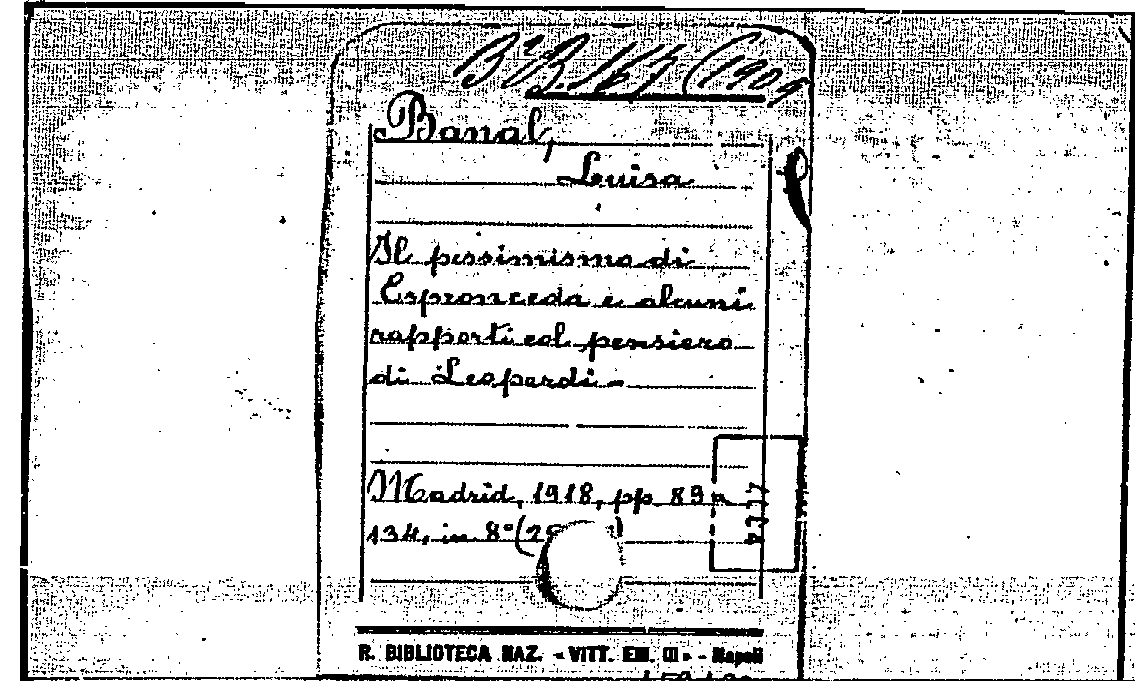 Banal,
Luisa
Il pessimismo di
Espronceda e alcuni
rapporti col pensiero
di Leopardi -
Madrid, 1918, pp. 89 a
134, in 8° (2
R. BIBLIOTECA NAZ. « VITT. EM. III » - Napoli